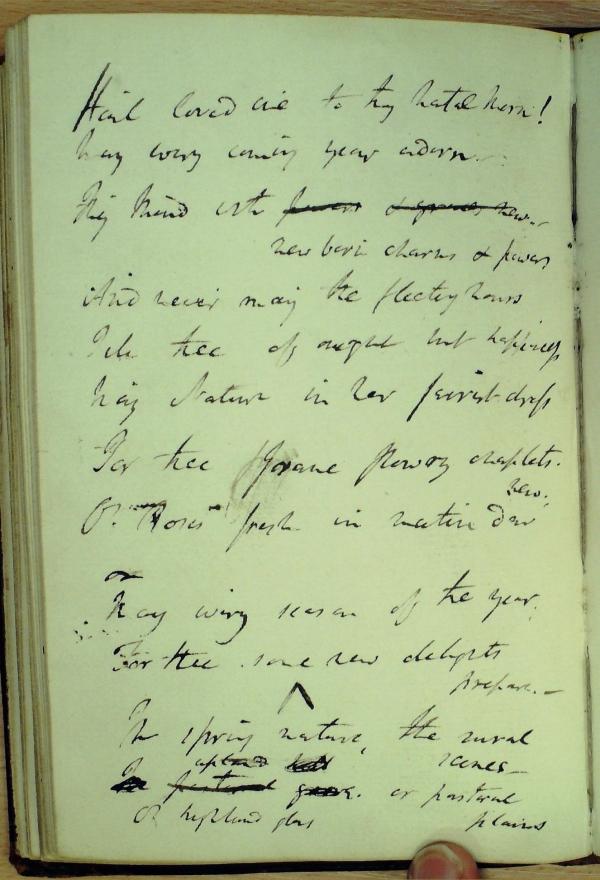 Hail loved one to thy natal Morn!
May every coming year adorn
Thy Mind with powers & graces new
new born charms & powers
And never may the fleeting hours
Tell thee of ought but happiness
May Nature in her fairest dress
For thee prepare flowery chaplets.
Of Roses fresh in matin Dew
new.
or
May every season of the year,
For thee some new delights
prepare.—
In spring nature, the rural
scenes
upland
pastoral grove. or pastoral
Of highland glens plains